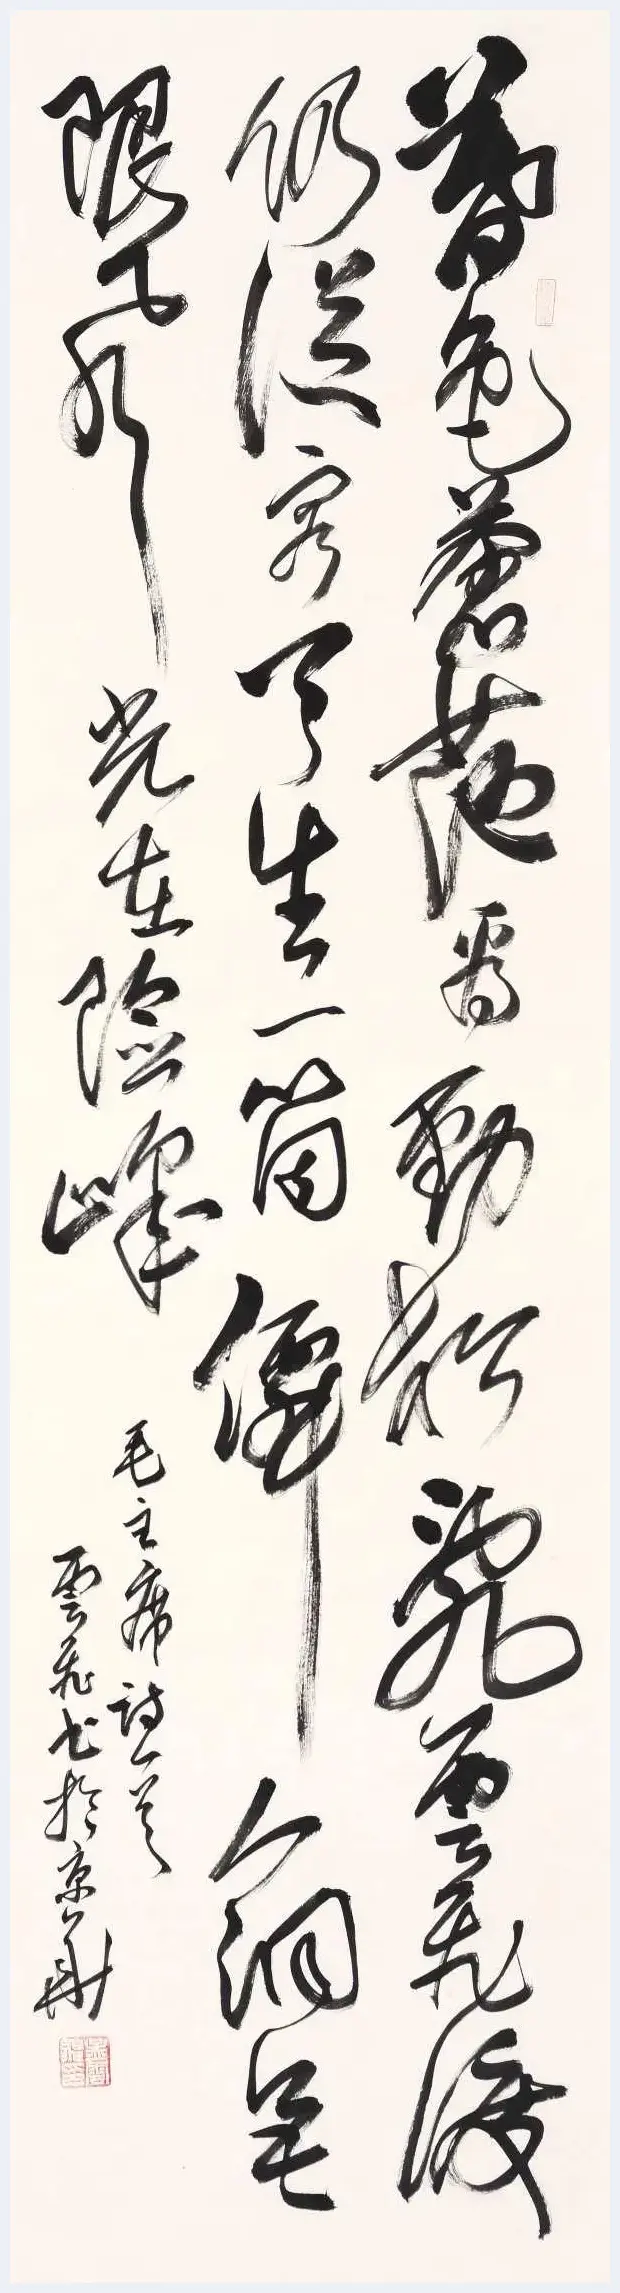 暮色蒼茫看勁松亂雲飛渡
仍從容天生一箇僊人洞無
限風光在險峰
毛主席詩一首
雲飛書於京華